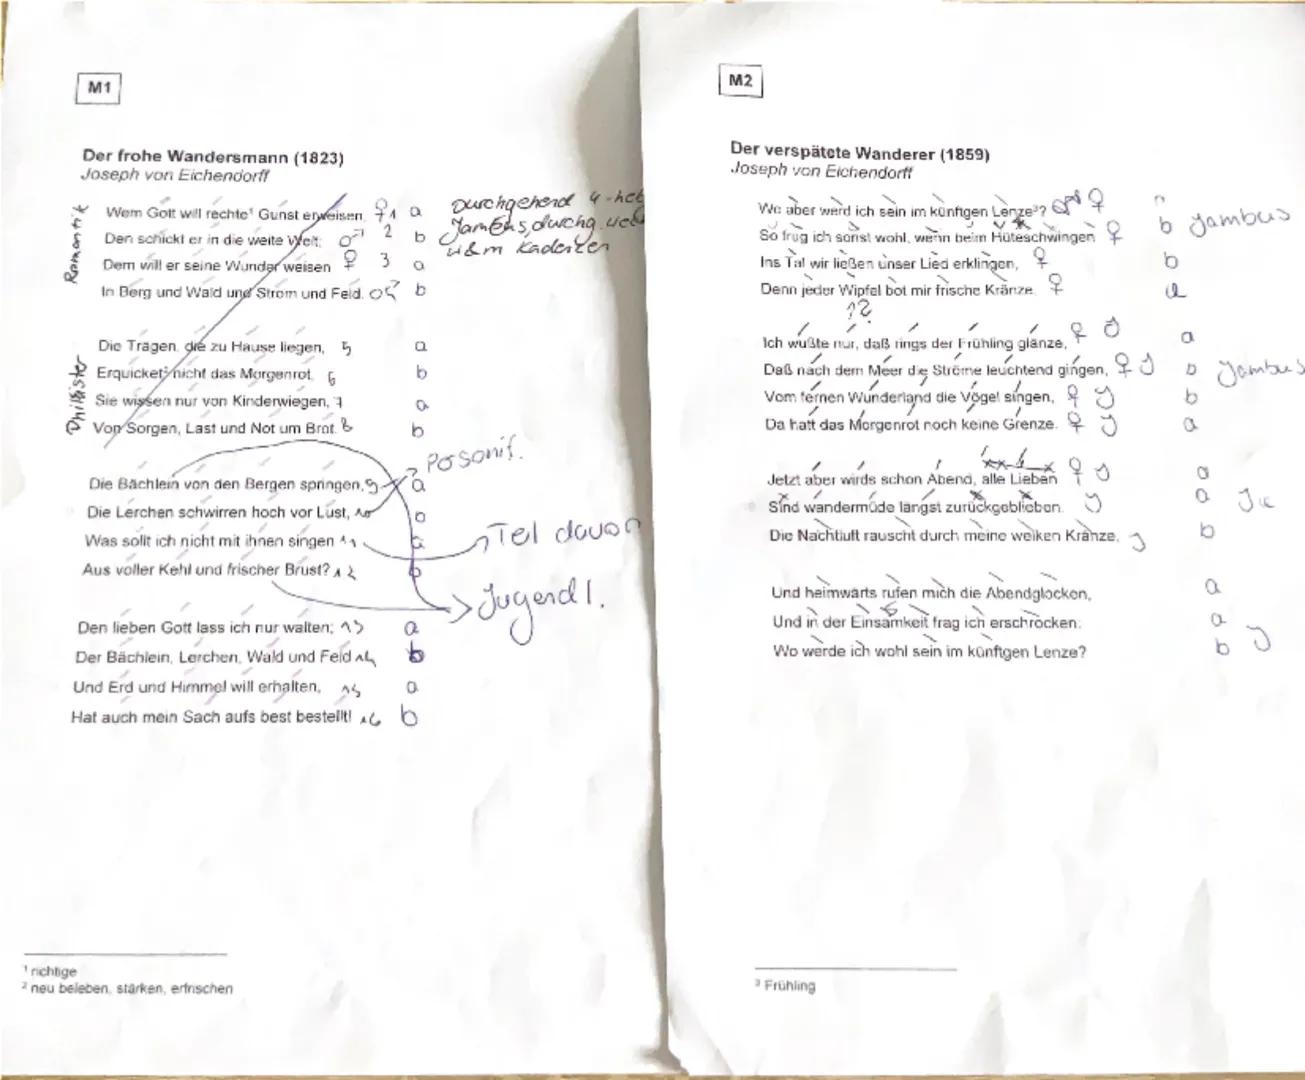 M1
Der frohe Wandersmann (1823)
Joseph von Eichendorff
Romantik
Durchgehend 4-heb
Wem Gott will rechte¹ Gunst erweisen, ♀ 1 a
Den schickt er in die weite Welt; 2 b
Dem will er seine Wunder weisen ♀ 3 a
In Berg und Wald und Strom und Feld. b
Philister
Die Trägen, die zu Hause liegen, 5 a
Erquicket² nicht das Morgenrot, 6 b
Sie wissen nur von Kinderwiegen, 7 a
Von Sorgen, Last und Not um Brot. 8 b
Personif.
Die Bächlein von den Bergen springen, 9 a
Die Lerchen schwirren hoch vor Lust, 10 b
Was sollt ich nicht mit ihnen singen 11 a
Teil davon
Aus voller Kehl und frischer Brust? 12 b
Jugendl.
Den lieben Gott lass ich nur walten; 13 a
Der Bächlein, Lerchen, Wald und Feld 14 b
Und Erd und Himmel will erhalten, 15 a
Hat auch mein Sach aufs best bestellt! 16 b
¹ richtige
² neu beleben, stärken, erfrischen
M2
Der verspätete Wanderer (1859)
Joseph von Eichendorff
Wo aber werd ich sein im künftgen Lenze³? ♀
So frug ich sonst wohl, wenn beim Hüteschwingen ♀ b Jambus
Ins Tal wir ließen unser Lied erklingen, ♀ b
Denn jeder Wipfel bot mir frische Kränze. ♀ a
Ich wußte nur, daß rings der Frühling glänze, ♀ a
Daß nach dem Meer die Ströme leuchtend gingen, ♀ b Jambus
Vom fernen Wunderland die Vögel singen, ♀ b
Da hatt das Morgenrot noch keine Grenze. ♀ a
Jetzt aber wirds schon Abend, alle Lieben ♀ a
Sind wandermüde längst zurückgeblieben. a
Die Nachtluft rauscht durch meine welken Kränze, b
Und heimwärts rufen mich die Abendglocken, a
Und in der Einsamkeit frag ich erschrocken: a
Wo werde ich wohl sein im künftgen Lenze? b
³ Frühling